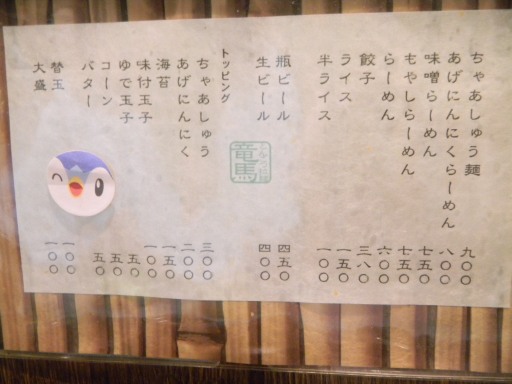 ちゃあしゅう麺 九〇〇
あげにんにくらーめん 八〇〇
味噌らーめん 七五〇
もやしらーめん 七五〇
らーめん 六〇〇
餃子 三八〇
ライス 一五〇
半ライス 一〇〇
瓶ビール 四五〇
生ビール 四〇〇
竜馬
トッピング
ちゃあしゅう 三〇〇
あげにんにく 二〇〇
海苔 一五〇
味付玉子 一〇〇
ゆで玉子 五〇
コーン 五〇
バター 五〇
替玉 一〇〇
大盛 一〇〇